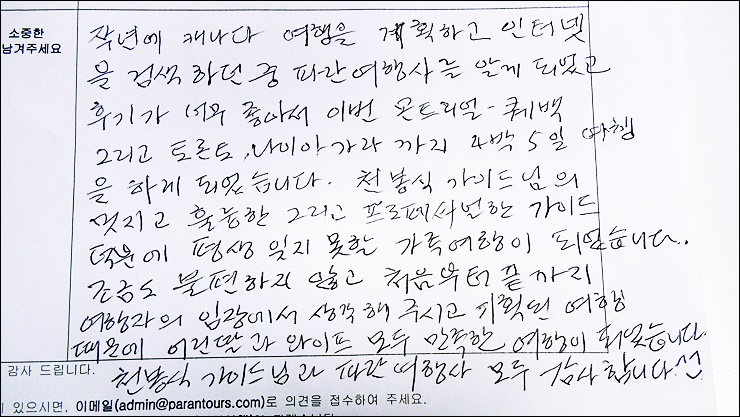 소중한
남겨주세요
작년에 캐나다 여행을 계획하고 인터넷
을 검색하던 중 파란여행사를 알게 되었고
후기가 너무 좋아서 이번 몬트리얼-퀘백
그리고 토론토, 나이아가라 까지 4박 5일 여행
을 하게 되었습니다. 천봉식 가이드님의
멋지고 훌륭한 그리고 프로페셔널한 가이드
덕분에 평생 잊지 못할 가족여행이 되었습니다.
조금도 불편하지 않고 처음부터 끝까지
여행자의 입장에서 생각해 주시고 기획된 여행
때문에 어린딸과 와이프 모두 만족한 여행이 되었습니다.
감사 드립니다.
천봉식 가이드님과 파란여행사 모두 감사합니다.
있으시면, 이메일(admin@parantours.com)로 의견을 접수하여 주세요.